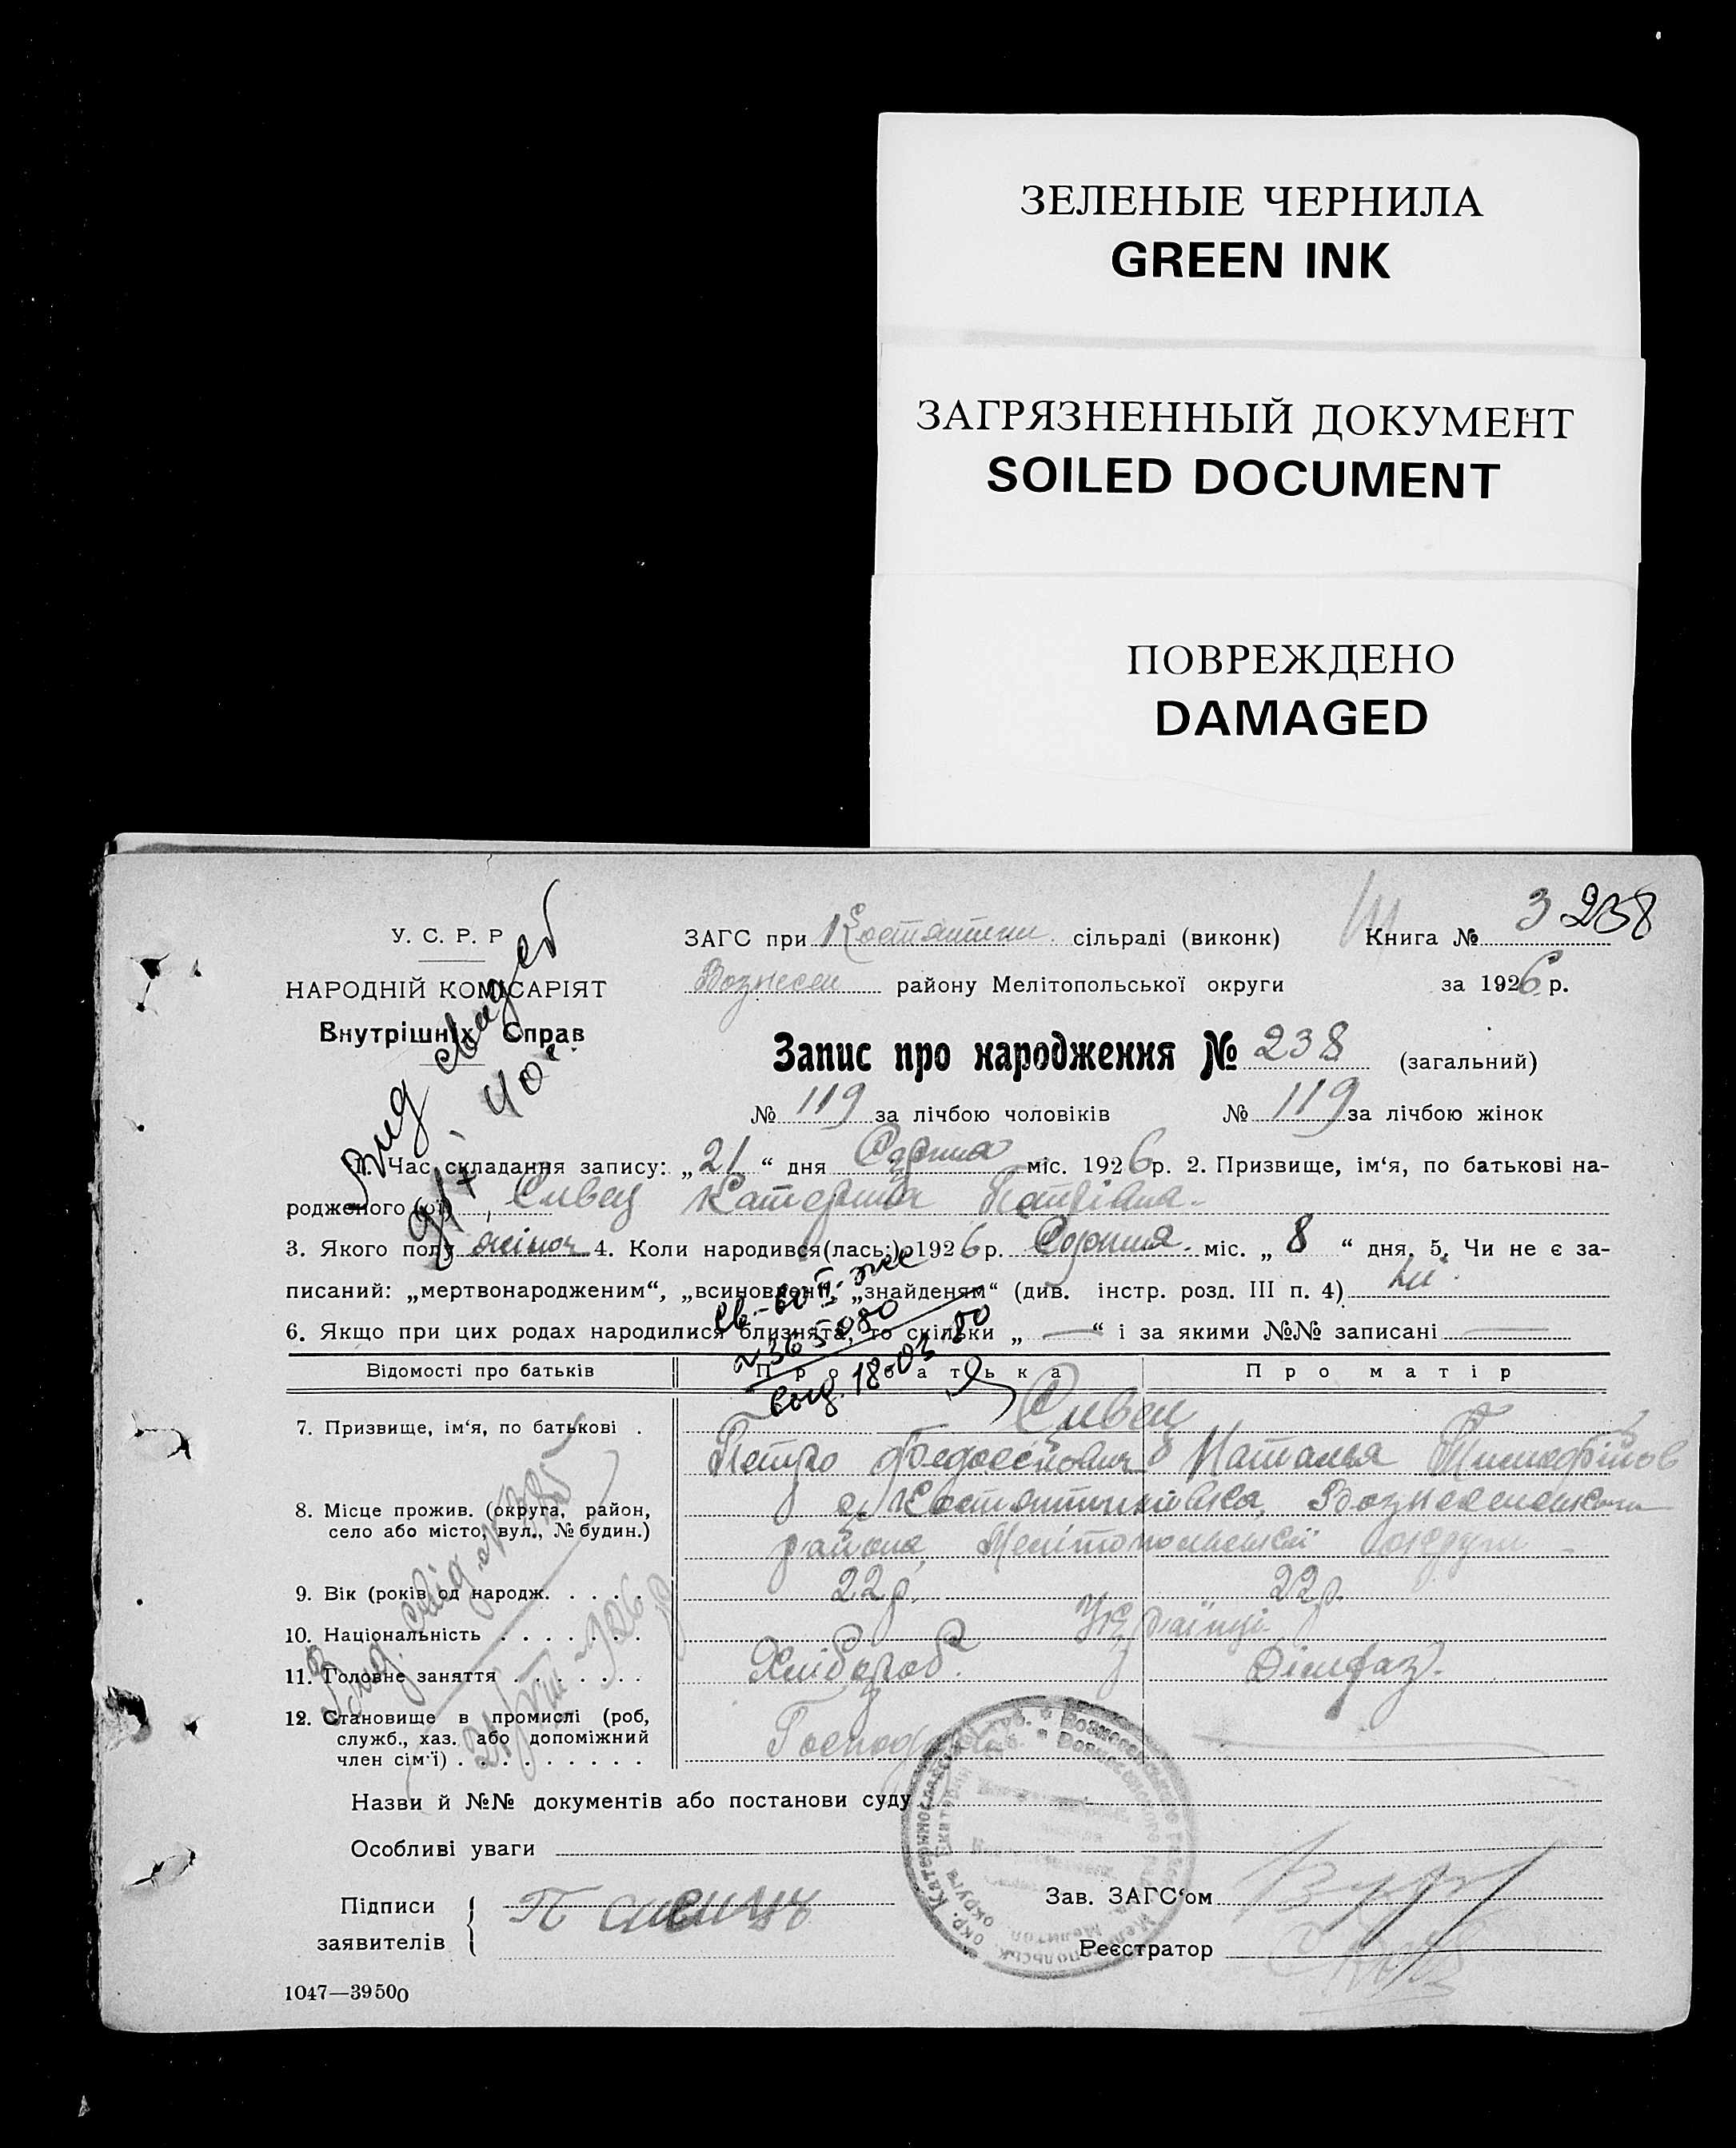 ЗЕЛЕНЫЕ ЧЕРНИЛА
GREEN INK
ЗАГРЯЗНЕННЫЙ ДОКУМЕНТ
SOILED DOCUMENT
ПОВРЕЖДЕНО
DAMAGED
У. С. Р. Р
НАРОДНІЙ КОМІСАРІЯТ
Внутрішніх Справ
ЗАГС при Костянтин. сільраді (виконк) Книга № 3 238
Вознесен району Мелітопольської округи за 1926 р.
Запис про народження № 238 (загальний)
№ 119 за лічбою чоловіків № 119 за лічбою жінок
1. Час складання запису: „21“ дня Серпня міс. 1926 р. 2. Призвище, ім‘я, по батькові на-
родженого (ої) Сивец Катерина Петрівна
3. Якого полу жіноч 4. Коли народився(лась:) 1926 р. Серпня міс. „8“ дня. 5. Чи не є за-
писаний: „мертвонародженим“, „всиновлений, „знайденям“ (див. інстр. розд. III п. 4) ні.
6. Якщо при цих родах народилися близнята, то скільки „—“ і за якими №№ записані —
Відомості про батьків Про батька Про матір
7. Призвище, ім‘я, по батькові . Сивец
Петро Наталья
8. Місце прожив. (округа, район,
село або місто, вул., № будин.)
с. Костянтинівка, Вознесенського
района, Мелітопольської округи
9. Вік (років од народж. . . . . . 22 р. 22 р.
10. Національність . . . . . . . Українці
11. Головне заняття . . . . . . . Хлібороб.
12. Становище в промислі (роб,
служб., хаз. або допоміжний
член сім‘ї) . . . . . . . . . .
Назви й №№ документів або постанови суду
Особливі уваги
Підписи
заявителів
П Сивець
Зав. ЗАГС‘ом
Реєстратор
1047—39500
выд. 18-03-80